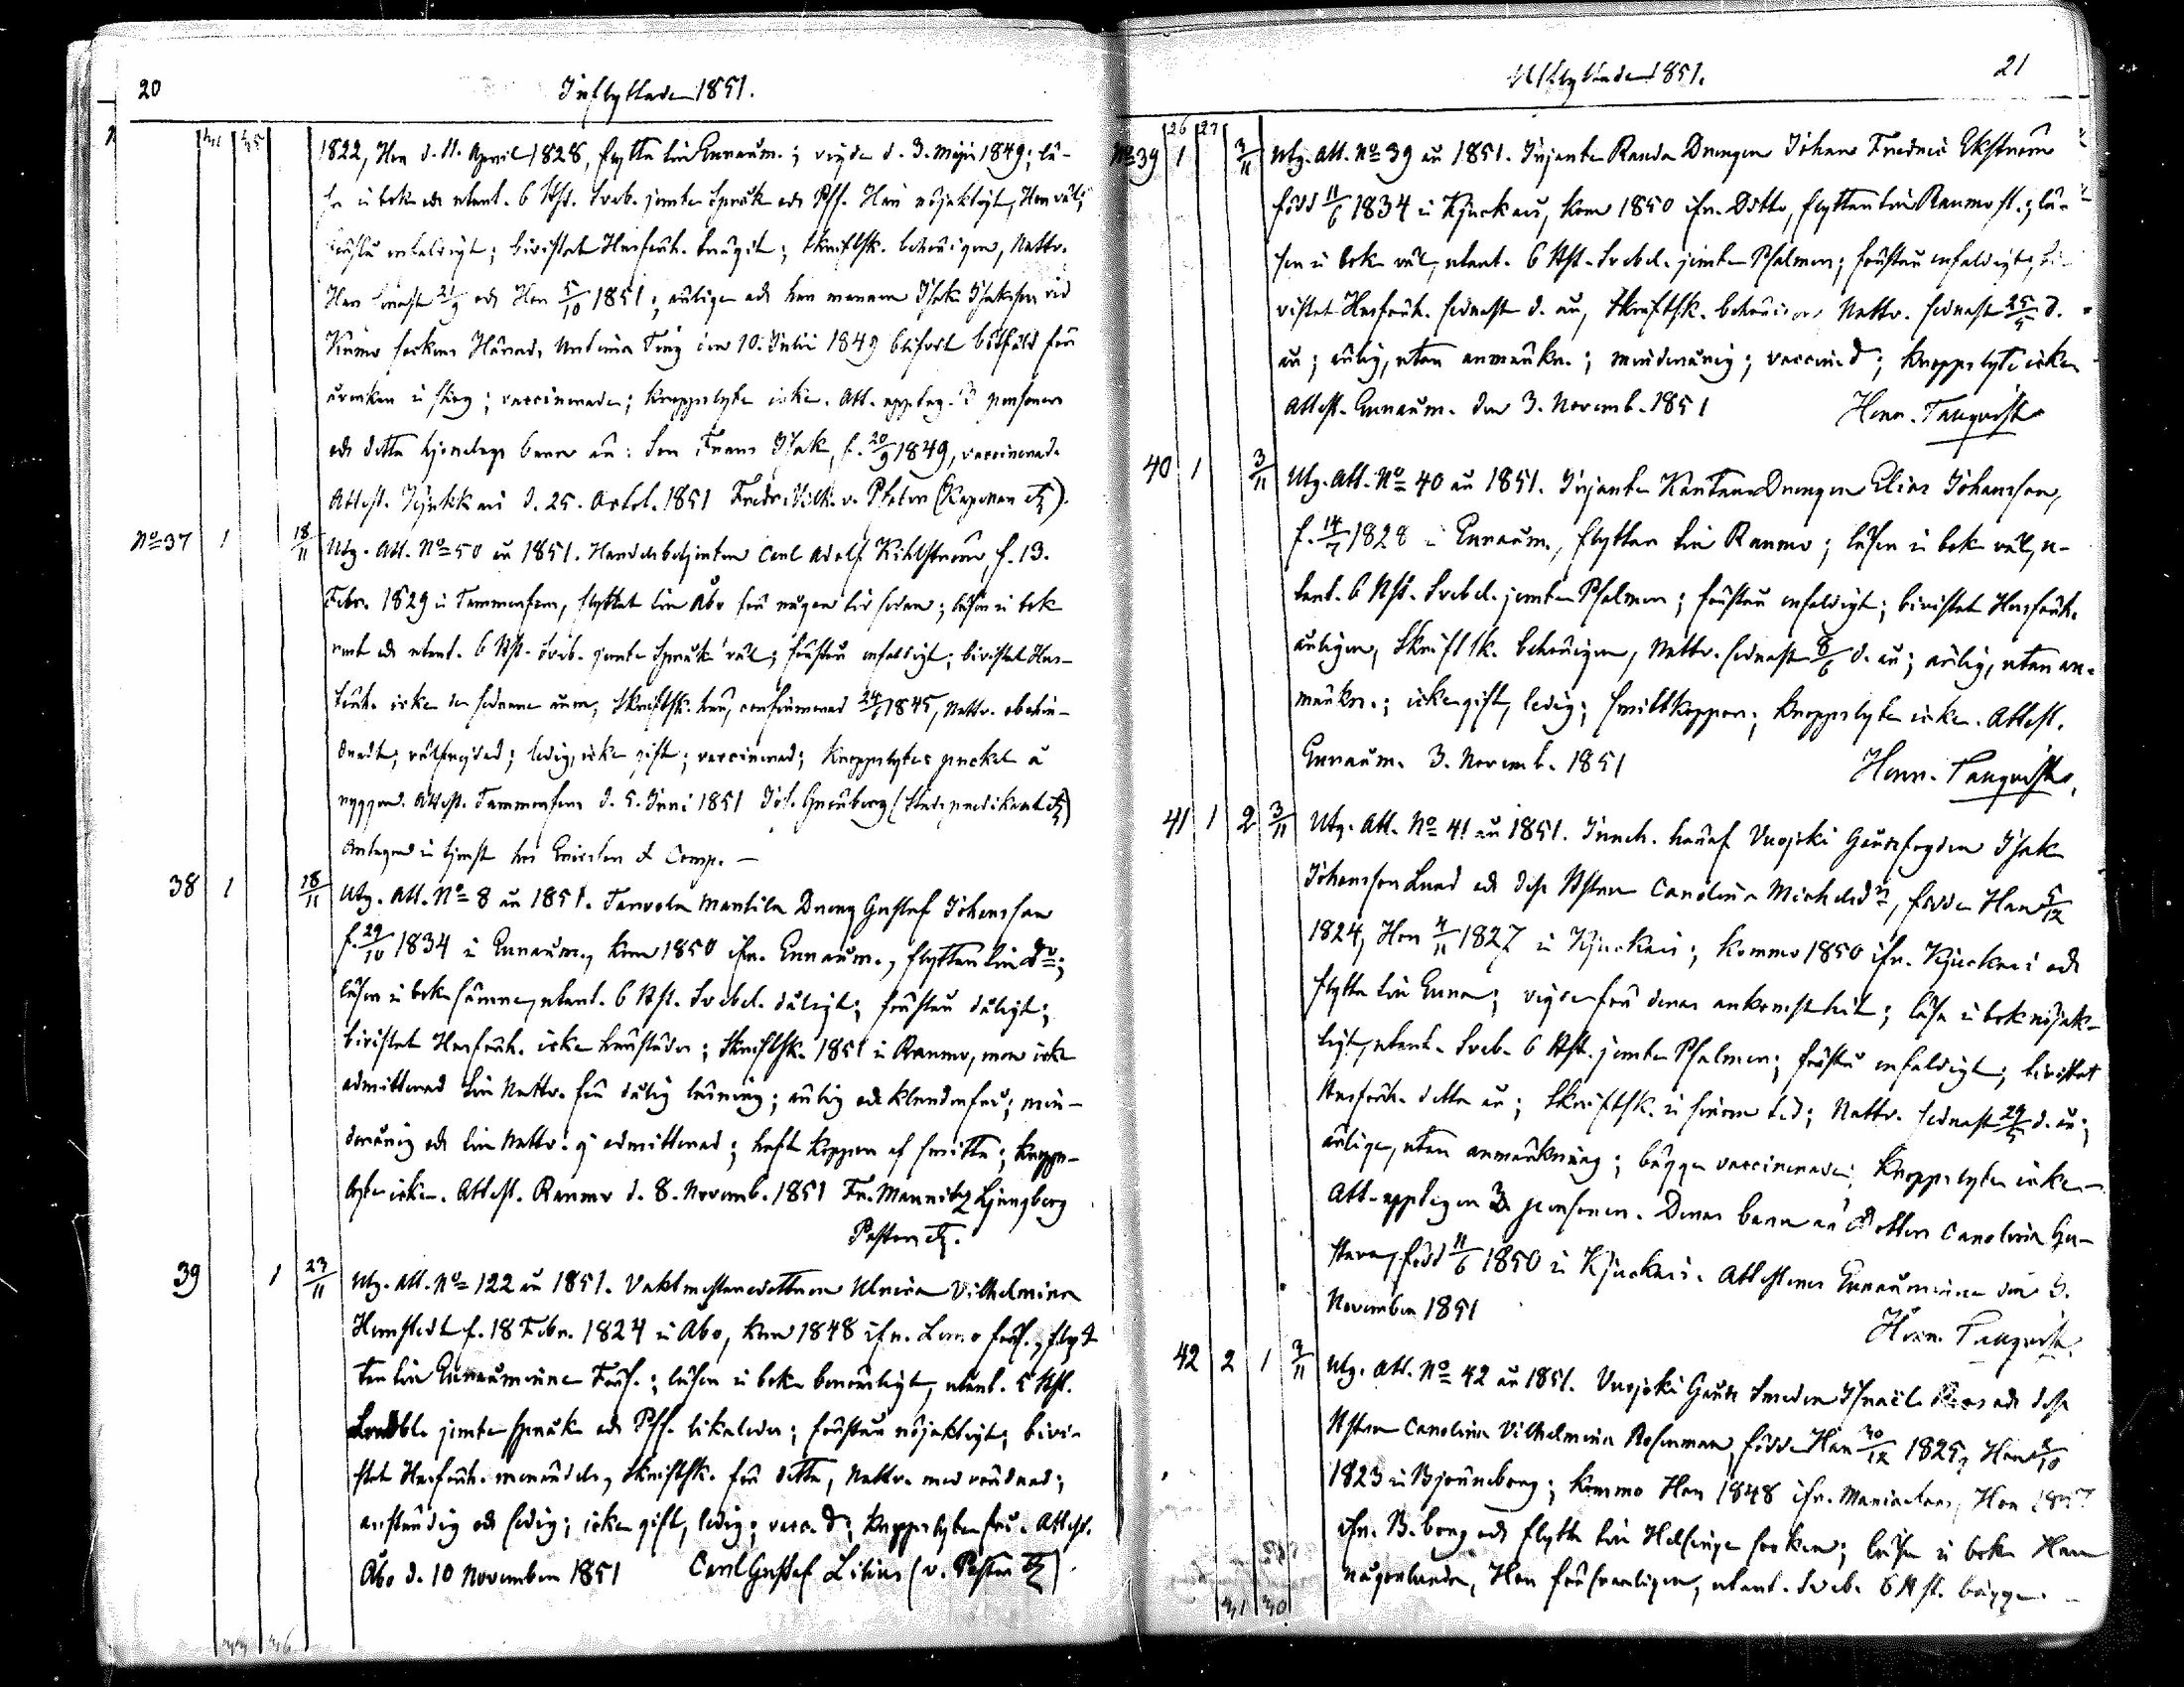 20
Inflyttade 1851.
1822, Hon d. 11. April 1828, flytta till Euraåm.; vigde d. 3. Maji 1849; lä-
sa i bok och utant. 6 Hst. Sveb. jemte Språk och Pss. Han nöjaktigt, Hon väl;
förstå enfaldigt; bivistat Husförh. trägit; Skriftsk. behörigen, Nattv.
Han senast 21/9 och Hon 5/10 1851; ärliga och har mannen Isak Isaksson vid
Kumo sockens Härads Vintertingt den 10. Julii 1849 blifvit bötfäld för
åverkan i skog; vaccinerade; Kroppslyten icke. Att. upptag. 3 personer
och detta hjonelags barn är: Son Frans Isak, f. 20/9 1849, vaccinerad.
Attest. Kjukkais d. 25. Octob. 1851 Fredr. Vilh. v. Platen (Kaponan &c).
No 37 1 18/11 Utg. Att. No 50 år 1851. Handelsbetjenten Carl Adolf Kihlström, f. 13.
Febr. 1829 i Tammerfors, flyttat till Åbo för någon tid sedan; läser i bok
rent och utant. 6 Hst. Sveb. jemte Språk väl; förstår enfaldigt; bivistat Hus-
förh. icke de sednare åren, Skriftsk. här, confirmerad 24/6 1845, Nattv. obehin-
dradt; välfrejdad; ledig, icke gift; vaccinerad; Kroppslytes puckel å
ryggen. Attest. Tammerfors d. 5. Juni 1851 Joh. Grönberg (Stadspredikant &c)
Antagen i tjenst hos Ericsson & Comp. —
38 1 18/11 Utg. Att. No 8 år 1851. Tarvola Mantila Dräng Gustaf Johansson
f. 29/10 1834 i Euraåm., kom 1850 ifr. Euraåm., flyttar till do;
läser i bok sämre, utant. 6 Hst. Svebel. dåligt; förstår dåligt;
bivistat Husförh. icke härstädes; Skriftsk. 1851 i Raumo, men icke
admitterad till Nattv. för dålig läsning; ärlig och klanderfri; min-
derårig och till Nattv. ej admitterad; haft koppor af smitta; Kropps-
lyten icke. Attest. Raumo d. 8. Novemb. 1851 Fr. Mauritz Ljungberg
Pastor &c.
39 1 23/11 Utg. Att. No 122 år 1851. Vaktmästaredottren Ulrica Vilhelmina
Hemstedt f. 18 Febr. 1824 i Åbo, kom 1848 ifr. Lemo förs., flyt-
tar till Euraåminne Förs.; läser i bok berömligt, utant. 5 Hst.
Svebl. jemte Språk och Pss. likaledes; förstår nöjaktigt; bivi-
stat Husförh. Skriftsk. för detta, Nattv. med vördnad;
anständig och sedig; icke gift, ledig; vacc.d; Kroppslyten fri. Attest.
Åbo d. 10 November 1851 Carl Gustaf Lilius (v. Pastor &c)
Utflyttade 1851.
21
26 27
No 39 1 3/11 Utg. Att. No 39 år 1851. Irjanten Randa Drängen Johan Fredric Ekström
född 11/6 1834 i Kjuckais, kom 1850 ifr. Ditto, flyttar till Raumo st.; lä-
ser i bok väl, utant. 6 Hst. Svebel. jemte Psalmer; förstår enfaldigt, bi-
vistat Husförh. sednast d. år, Skriftsk. behörigen, Nattv. sednast 25/5 d.
år; ärlig, utan anmärkn.; minderårig; vaccined; Kroppslyte icke
Attest. Euraåm. den 3. Novemb. 1851 Henr. Tanqvist
40 1 3/11 Utg. Att. No 40 år 1851. Irjanten Kantana Drängen Elias Johansson,
f. 14/7 1828 i Euraåm., flyttar till Raumo; läser i bok väl, u-
tant. 6 Hst. Svebel. jemte Psalmer; förstår enfaldigt; bivistat Husförh.
årligen, Skriftsk. behörigen, Nattv. sednast 8/6 d. år; ärlig, utan an-
märkn.; icke gift, ledig; smittkoppor; Kroppslyten icke. Attest.
Euraåm. 3. Novemb. 1851 Henr. Tanqvist.
41 1 2 3/11 Utg. Att. No 41 år 1851. Inneh. häraf Vuojoki Gårdsfogden Isak
Johansson Lund och dess Hustru Carolina Michelsdr, födde Han 5/12
1824, Hon 4/11 1827 i Kjuckais; kommo 1850 ifr. Kjuckais och
flytta till Eura; vigde för deras ankomst hit; läsa i bok nöjak-
tigt, utant. Sveb. 6 Hst. jemte Psalmer; förstå enfaldigt; bivistat
Husförh. detta år; Skriftsk. i sinom tid; Nattv. sednast 29/5 d. år;
ärliga, utan anmärkning; bägge vaccinerade; Kroppslyten icke.—
Att. upptager 3 personer. Deras barn är dottren Carolina Gu-
stava, född 11/6 1850 i Kjuckais. Attesteras Euraåminne den 3.
November 1851
Henr. Tanqvist.
42 2 1 3/11 Utg. Att. No 42 år 1851. Vuojoki Gårds Smeden Israël Roos och dess
Hustru Carolina Vilhelmina Rosenman, födde Han 30/12 1825, Hon 8/10
1823 i Björneborg; kommo Han 1848 ifr. Hon
ifr. B.borg och flytta till Helsinge socken; läsa i bok Han
någorlunda, Hon försvarligen, utant. Sveb. 6 Hst. bägge.
31 30